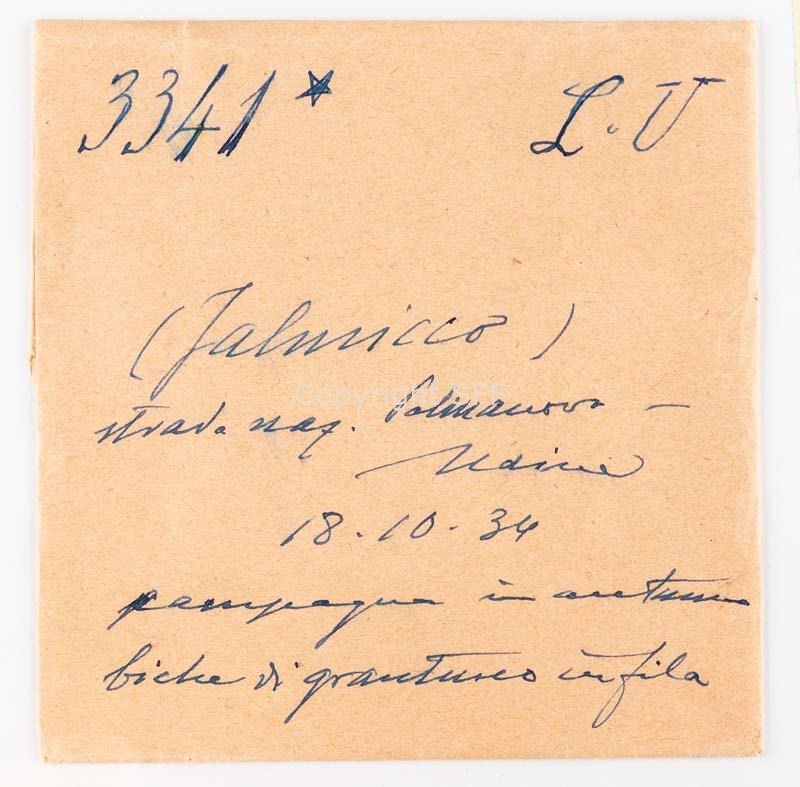 3341 * L. U
(Jalmicco)
Copyright
strada naz. Palmanova -
Udine
18.10.34
campagna in autunno
biche di granturco in fila